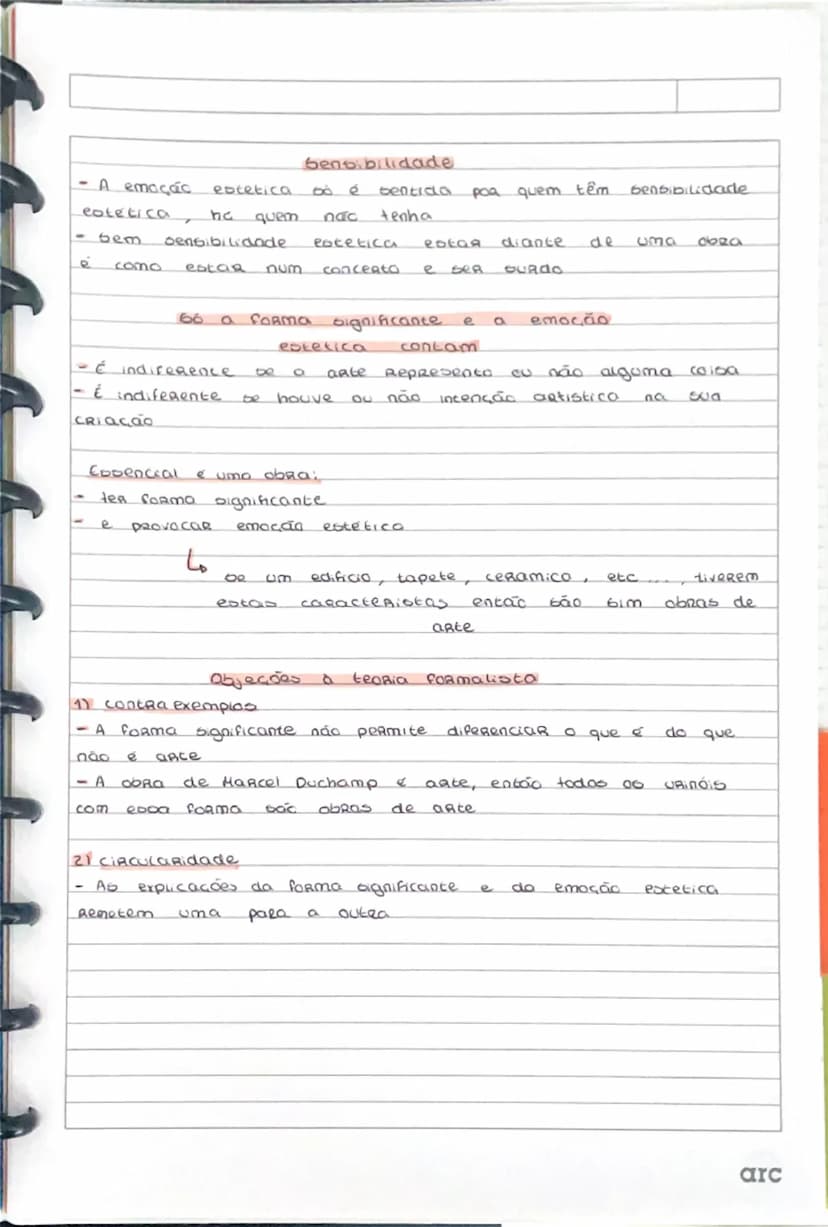 Sensibilidade
- A emoção estetica só é sentida por quem têm sensibilidade
estética, há quem não tenha
- Sem sensibilidade estetica estar diante de uma obra
é como estar num concerto e ser surdo
Só a forma significante e a emoção
estetica contam
- É indiferente se a arte representa ou não alguma coisa
- É indiferente se houve ou não intenção artistica na sua
criação
Essencial é uma obra:
- ter forma significante
- e provocar emoção estética
↳ se um edificio, tapete, ceramica, etc ..., tiverem
estas caracteristas entaõ são sim obras de
arte
Objeções à teoria formalista
1) contra exemplos
- A forma significante não permite diferenciar o que é do que
não é arte
- A obra de Marcel Duchamp é arte, então todos os urinóis
com essa forma são obras de arte
2) circularidade
- As explicações da forma significante e da emoção estetica
remetem uma para a outra
arc